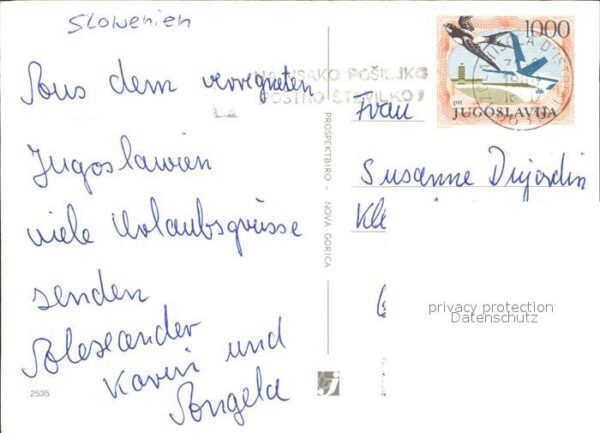 Slowenien
Aus dem verregneten
Jugoslawien
viele Urlaubsgrüsse
senden
Alexander
Karin und
Angela
2535
PROSPEKTBIRO - NOVA GORICA
NA VSAKO POŠILJKO
POSTNO ŠTEVILKO!
1000
PTT
JUGOSLAVIJA
Frau
Susanne Dujardin
privacy protection
Datenschutz